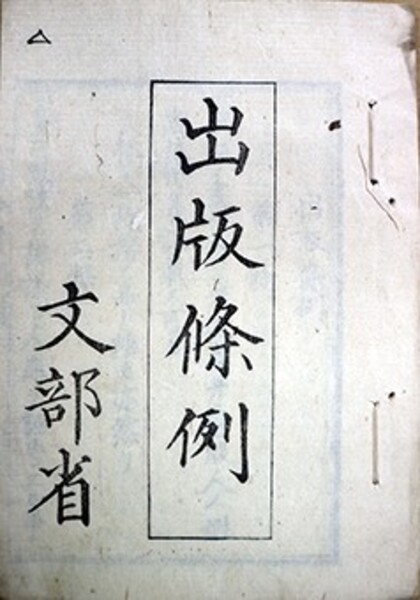 出版條例
文部省